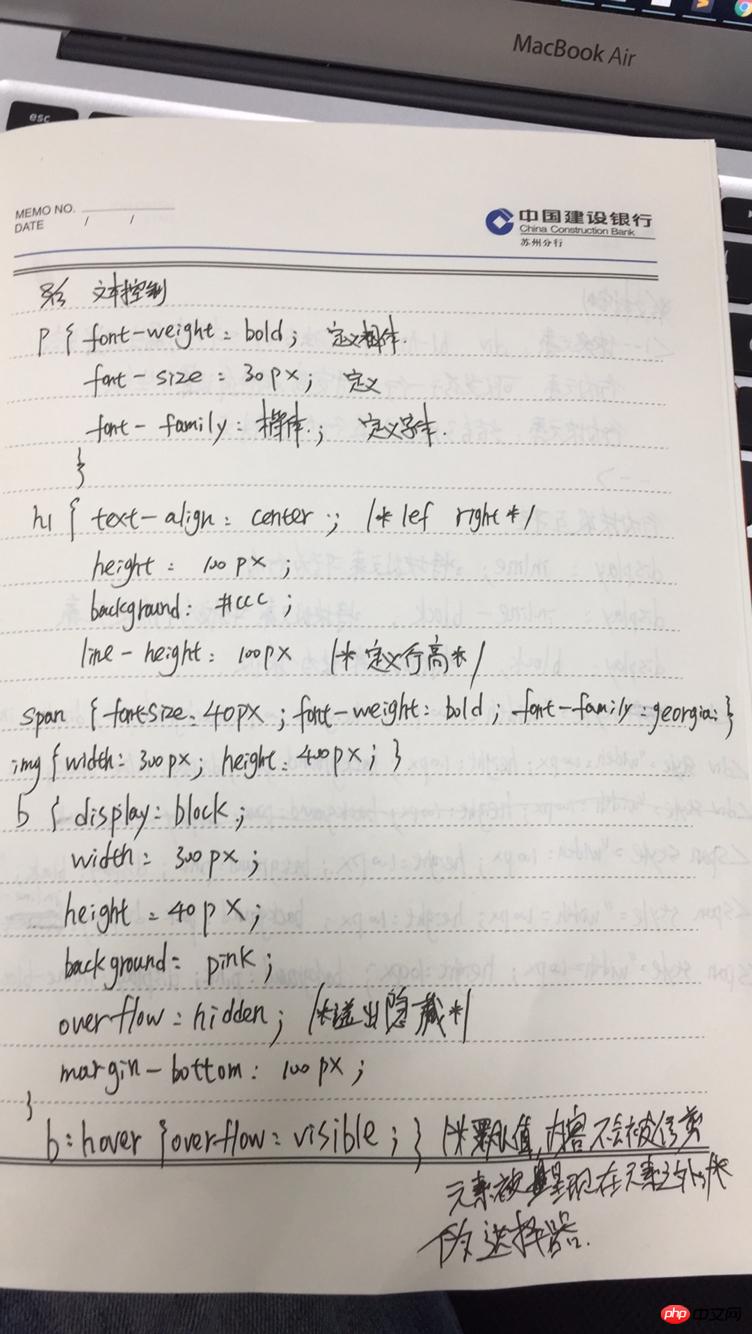 MacBook Air
esc
MEMO NO.
DATE / /
中国建设银行
China Construction Bank
苏州分行
文本控制
p { font-weight: bold; 定义粗体.
font-size: 30px; 定义
font-family: 楷体.; 定义字体.
}
h1 { text-align: center ; /* lef right */
height: 100px ;
background: #ccc ;
line-height: 100px /* 定义行高 */
span { fontsize: 40px ; font-weight: bold ; font-family: georgia; }
img { width: 300px; height: 400px ; }
b { display: block ;
width: 300px ;
height: 40px ;
background: pink ;
overflow: hidden ; /* 溢出隐藏 */
margin-bottom: 100px ;
}
b:hover { overflow: visible ; } /* 默认值, 内容不会被修剪
元素被 呈现在元素之外
伪选择器.
php 中文网